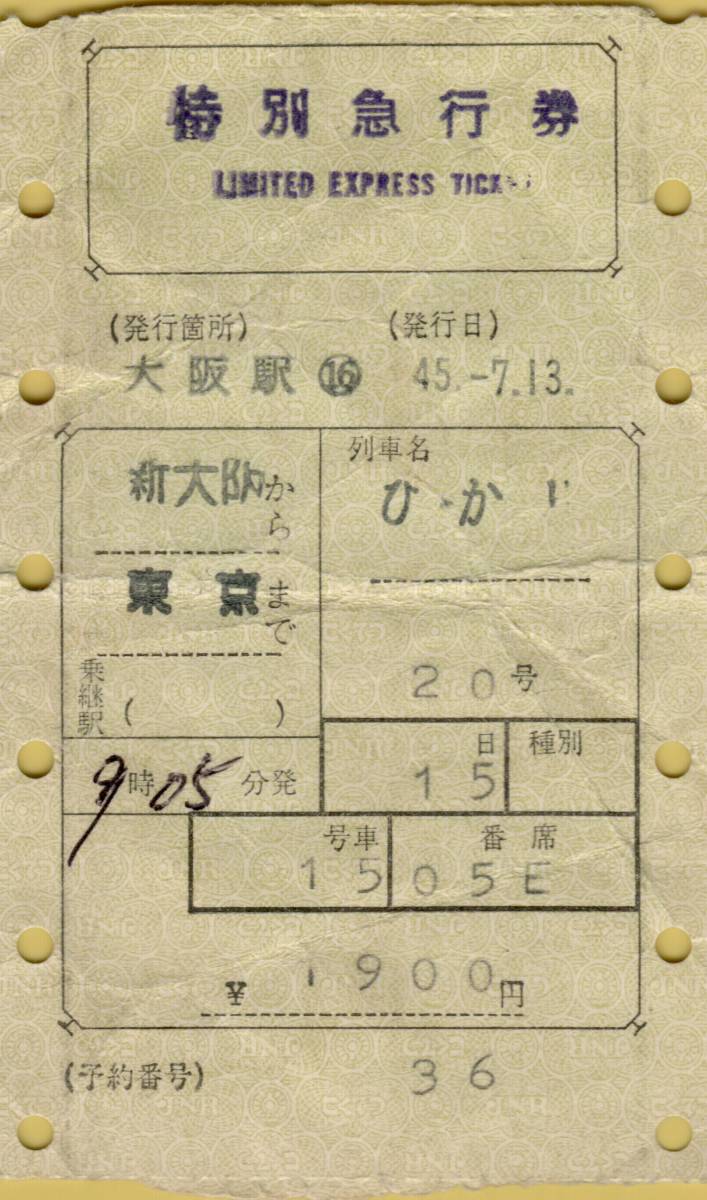 特別急行券
LIMITED EXPRESS TICKET
(発行箇所) (発行日)
大阪駅⑯ 45.-7.13.
新大阪から
東京まで
乗継駅 ( )
9時05分発
列車名
ひかり
20号
日 種別
15
号車 番席
15 05E
¥1900円
(予約番号) 36